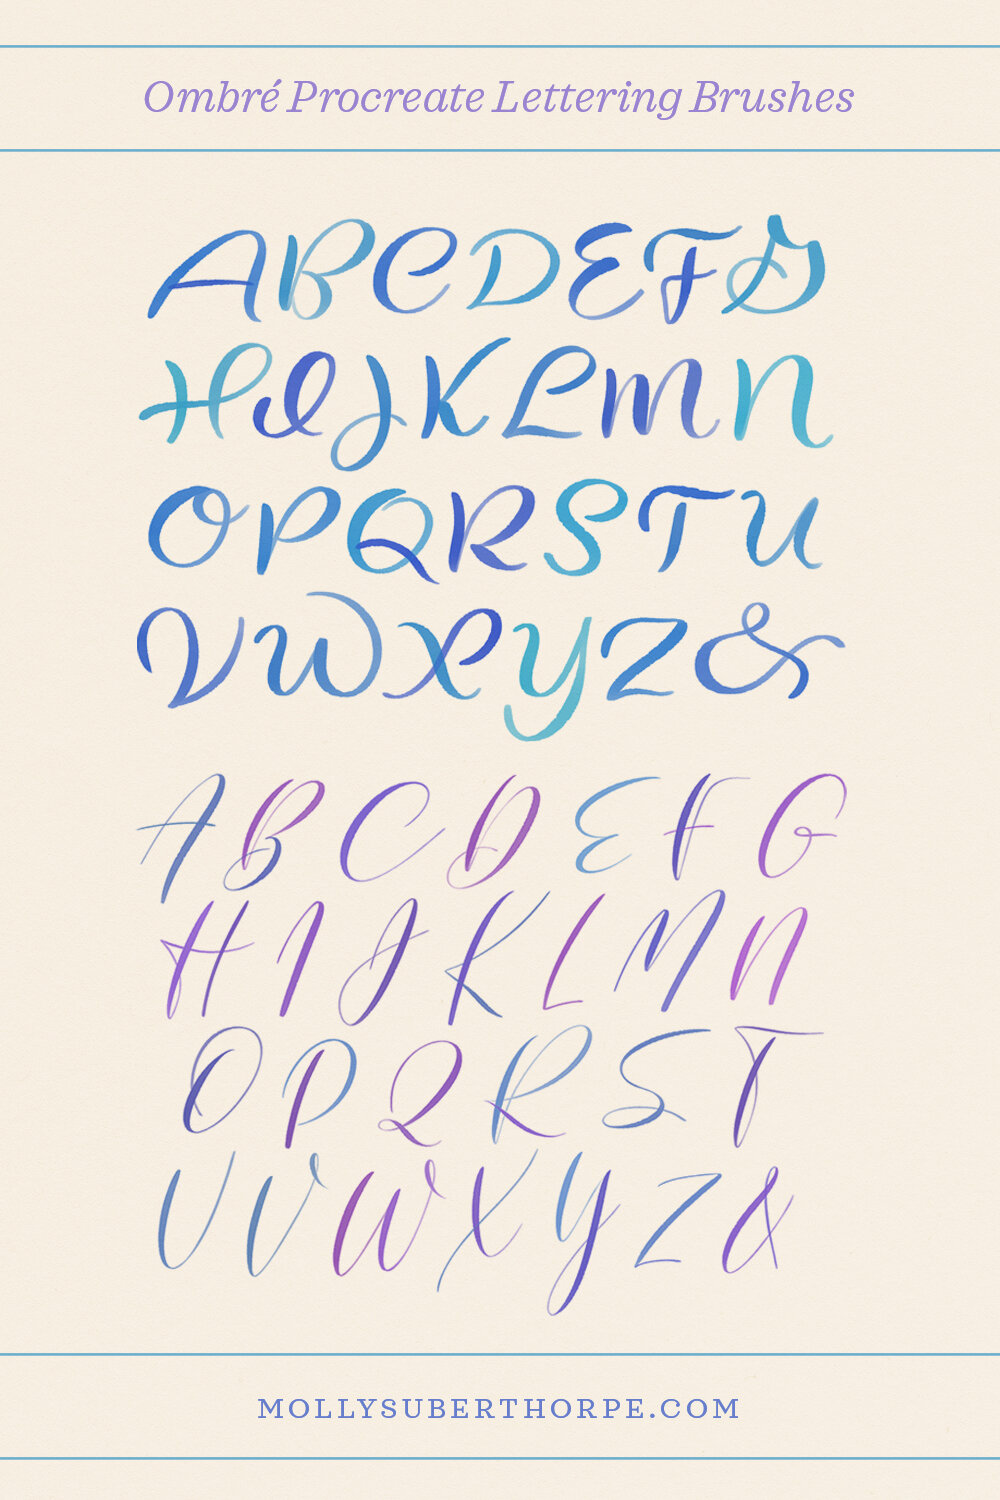 Ombré Procreate Lettering Brushes
ABCDEFG
HIJKLMN
OPQRSTU
VWXYZ&
ABCDEFG
HIJKLMN
OPQRST
UVWXYZ&
MOLLYSUBERTHORPE.COM